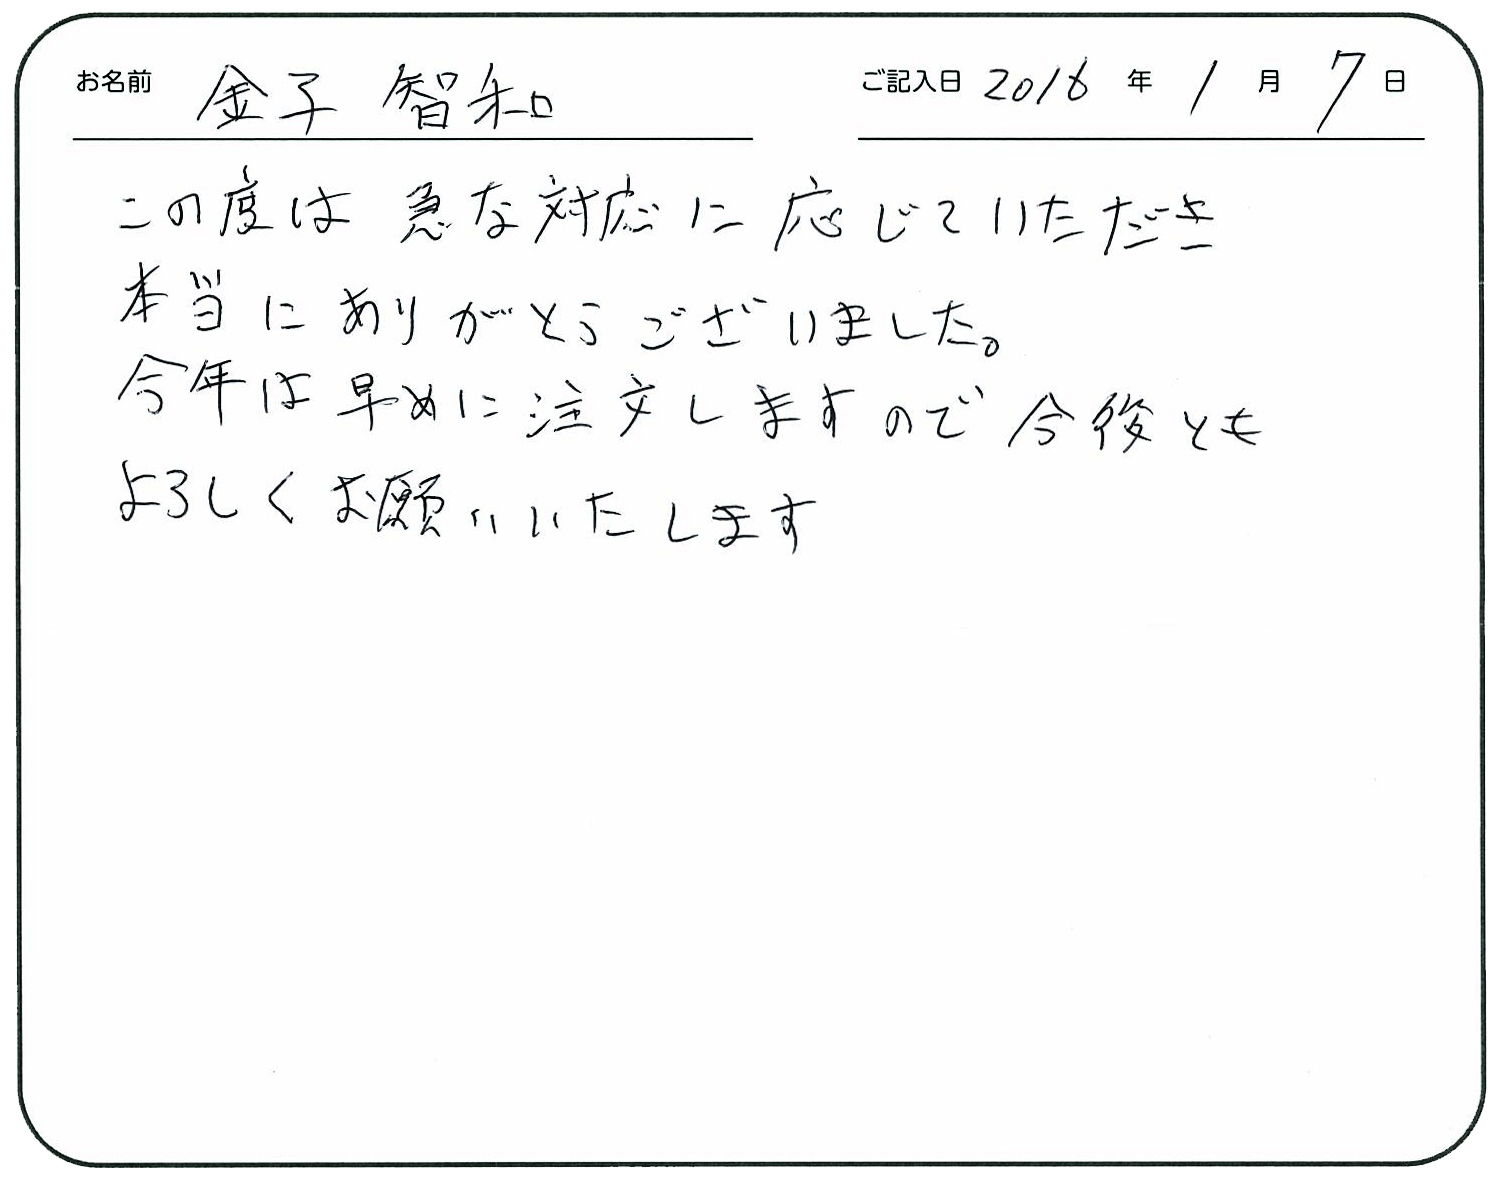 お名前 金子 智和 ご記入日 2016 年 1 月 7 日
この度は 急な対応に 応じていただき
本当に ありがとうございました。
今年は 早めに 注文しますので 今後とも
よろしく お願いいたします